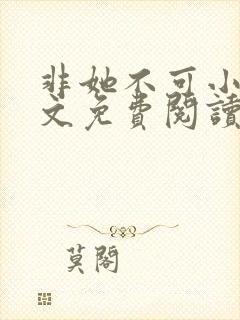 非她不可小
文免費閱讀
莫閣